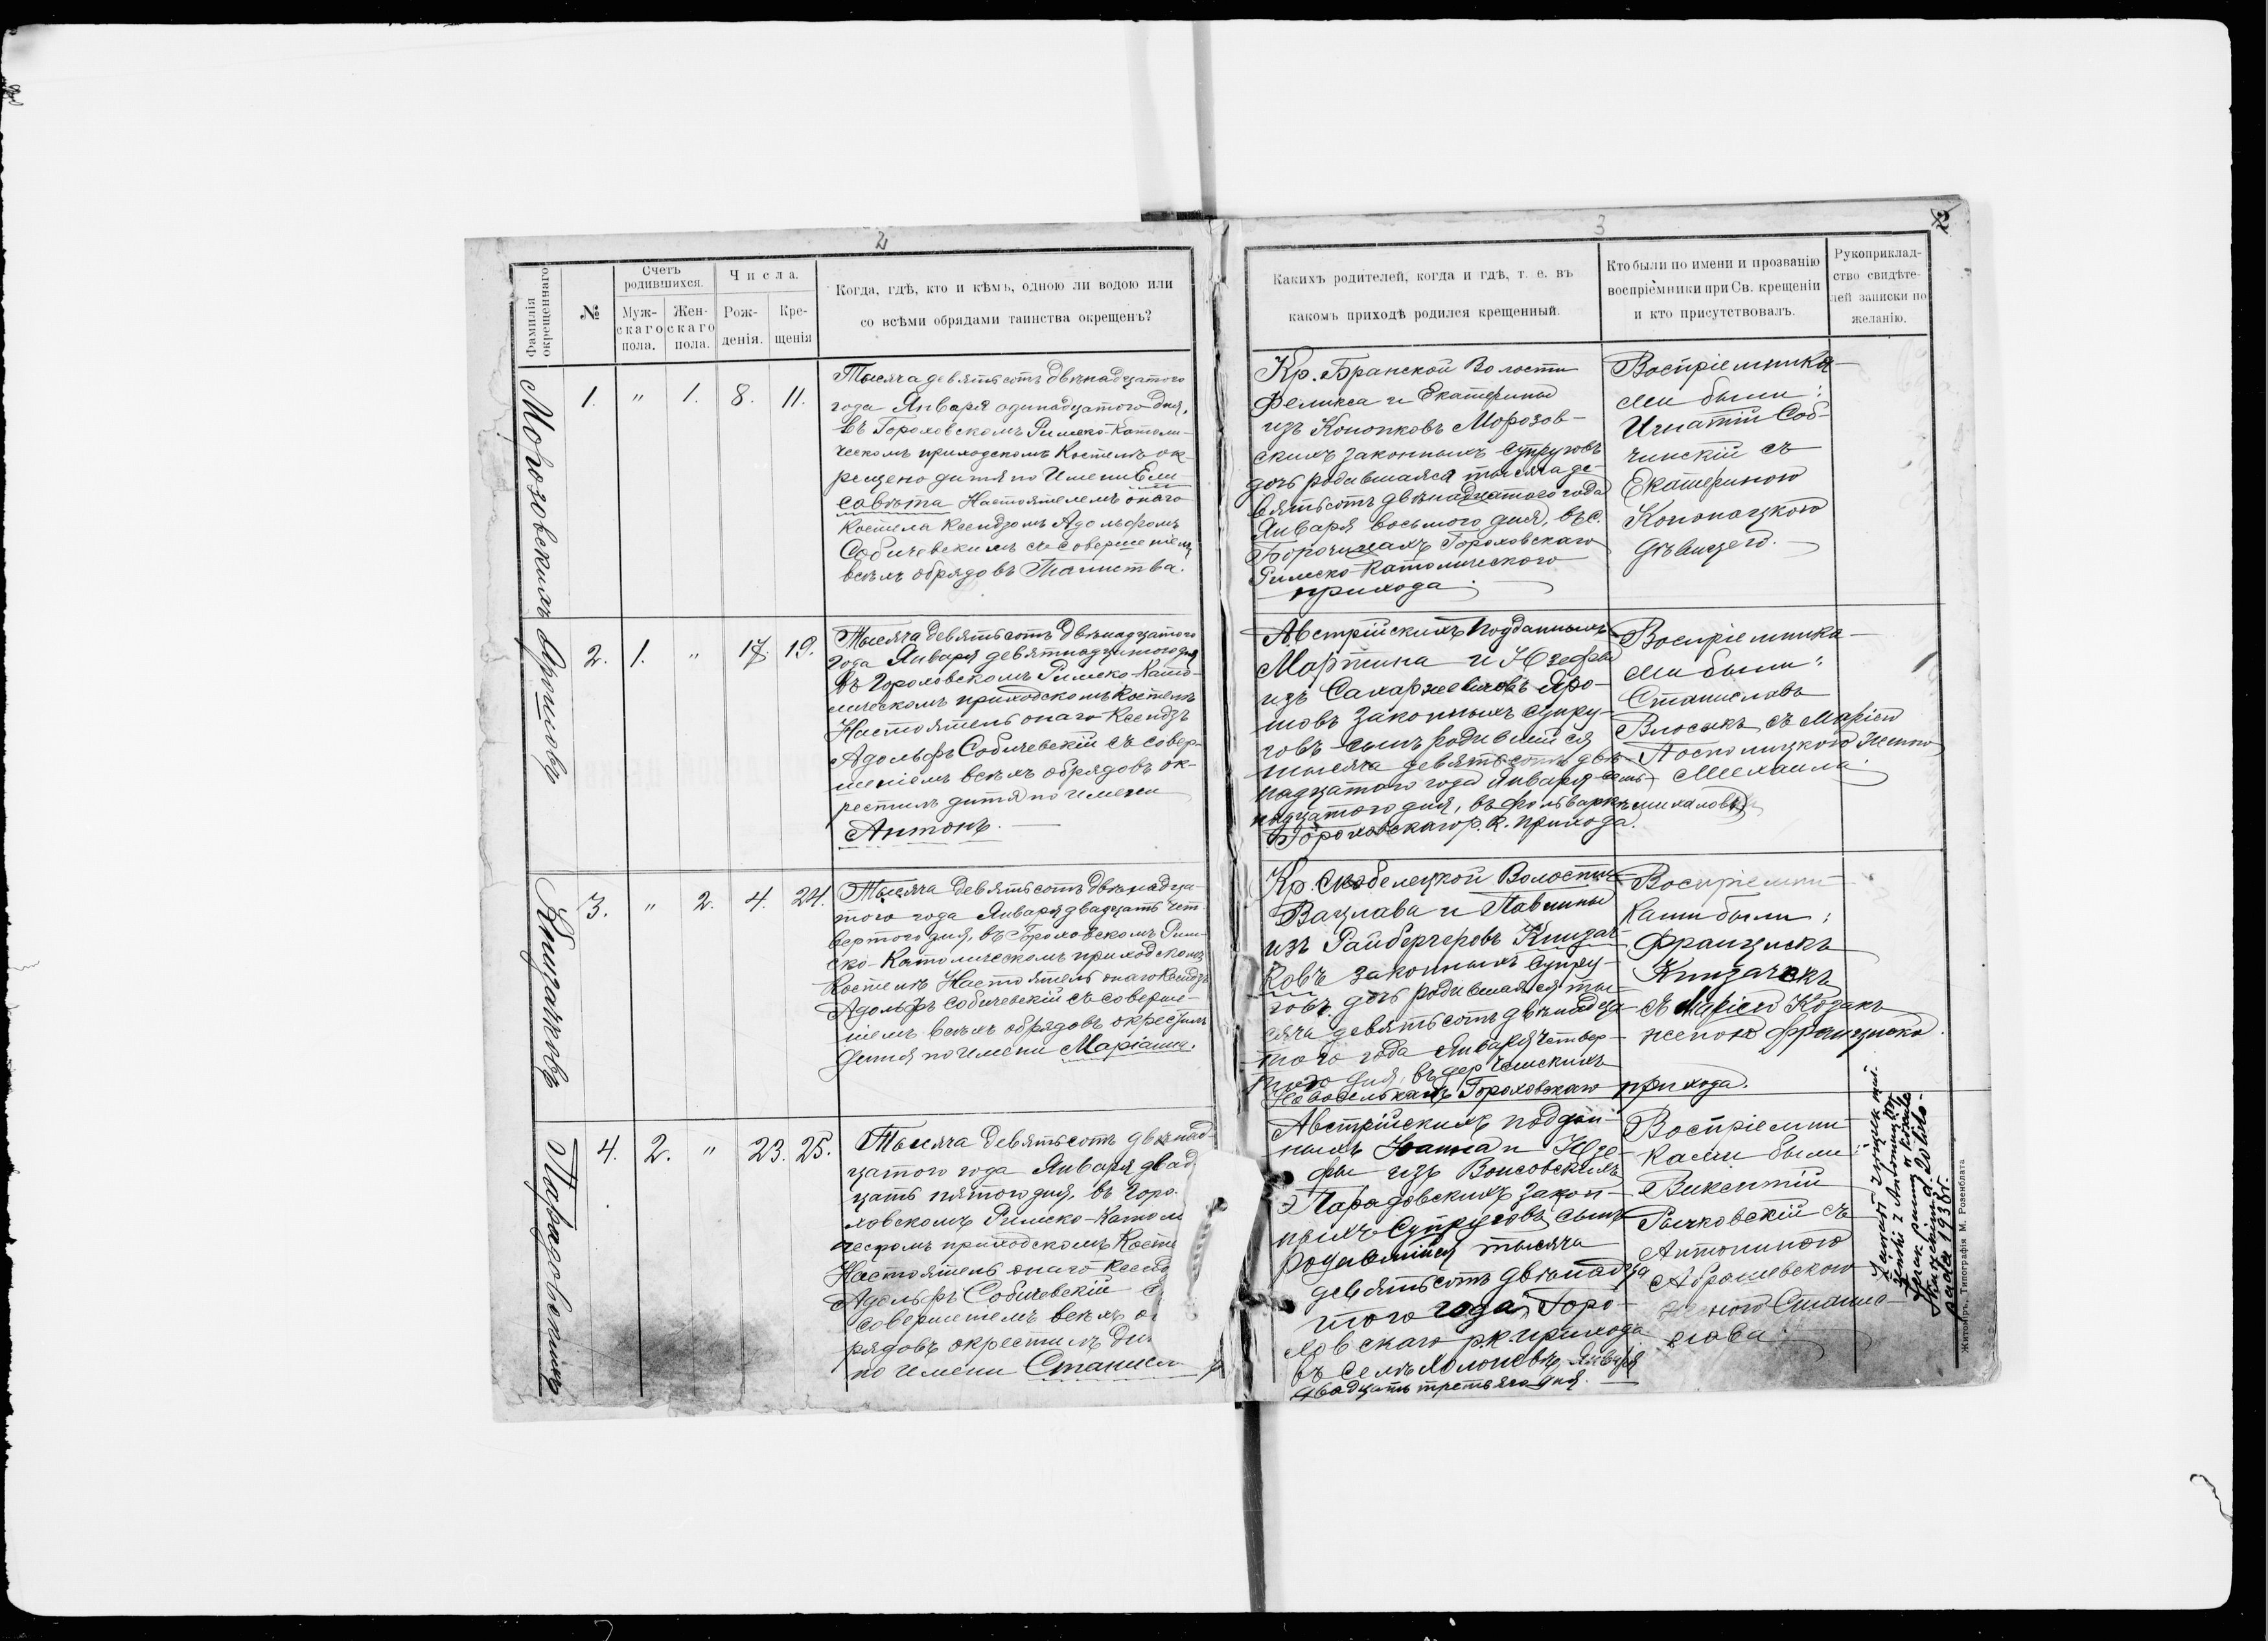 2
Фамилія окрещеннаго
№
Счетъ родившихся.
Мужскаго пола.
Женскаго пола.
Числа.
Рожденія.
Крещенія
Когда, гдѣ, кто и кѣмъ, одною ли водою или
со всѣми обрядами таинства окрещенъ?
Морозовскихъ
1. " 1. 8. 11.
Тысяча девятьсотъ двѣнадцатого
года Января одинадцатого дня,
въ Гороховскомъ Римско-Католи-
ческомъ приходскомъ Костелѣ ок-
рещено дитя по имени Ели
савѣта Настоятелемъ онаго
Костела Ксендзомъ Адольфомъ
Собичевскимъ съ совершеніемъ
всѣхъ обрядовъ Таинства.
Ярошовъ
2. 1. " 17. 19.
Тысяча девятьсотъ двѣнадцатого
года Января девятнадцатого дня
въ Гороховскомъ Римско-Като-
лическомъ приходскомъ Костелѣ
Настоятель онаго Ксендзъ
Адольфъ Собичевскій съ совер-
шеніемъ всѣхъ обрядовъ ок-
рестилъ дитя по имени
Антонъ.
Книзачковъ
3. " 2. 4. 24.
Тысяча девятьсотъ двѣнадца-
того года Января двадцать чет-
вертого дня, въ Гороховскомъ Рим-
ско-Католическомъ приходскомъ
Костелѣ Настоятель онаго Ксендзъ
Адольфъ Собичевскій съ соверше-
ніемъ всѣхъ обрядовъ окрестилъ
дитя по имени Маріанна.
Парадовскихъ
4. 2. " 23. 25.
Тысяча девятьсотъ двѣнад-
цатого года Января двад
цать пятого дня, въ Горо-
ховскомъ Римско-Катол
ческомъ приходскомъ Косте
Настоятель онаго Ксенд
Адольфъ Собичевскій с
совершеніемъ всѣхъ о
рядовъ окрестилъ ди
по имени Станисл
3
2
Какихъ родителей, когда и гдѣ, т. е. въ
какомъ приходѣ родился крещенный.
Кто были по имени и прозванію
воспріемники при Св. крещеніи
и кто присутствовалъ.
Рукоприклад-
ство свидѣте-
лей записки по
желанію.
Кр. Бранской Волости
Феликса и Екатерины
изъ Конопковъ Морозов-
скихъ законныхъ Супруговъ
дочь родившаяся тысяча де-
вятьсотъ двѣнадцатого года
Января восьмого дня, въ с.
Борочицахъ Гороховскаго
Римско-Католического
прихода.
Воспріемника-
ми были:
Игнатій Соб-
чинскій съ
Екатериною
Конопацкою
дѣвицею.
Австрійскихъ подданныхъ
Мартина и Юзефы
изъ Сахаржевиковъ Яро-
шовъ законныхъ супру-
говъ сынъ родившійся
тысяча девятьсотъ двѣ-
надцатого года Января сем-
надцатого дня, въ фольваркѣ Михаловкѣ
Гороховскаго р. к. прихода.
Воспріемника-
ми были:
Станиславъ
Влосыкъ съ Маріею
Посполицкою женою
Михаила
Кр. Скобелецкой Волости
Вацлава и Павлины
изъ Райбергеровъ Книзач-
ковъ законныхъ супру-
говъ дочь родившаяся ты-
сяча девятьсотъ двѣнадца-
того года Января четвер-
того дня, въ дер. Чешскихъ
Новоселкахъ Гороховскаго прихода.
Воспріемни-
ками были:
Францискъ
Книзачекъ
съ Маріею Козакъ
женою Франциска.
Австрійскихъ поддан-
ныхъ Іоанна и Юзе-
фы изъ Воисовскихъ
Парадовскихъ закон-
ныхъ Супруговъ, сынъ
родившійся тысяча
девятьсотъ двѣнадца
того года, Горо-
ховскаго р.к. прихода
въ селѣ Холоневѣ, Января
двадцать третьяго дня.
Воспріемни-
ками были:
Викентій
Рычковскій съ
Антониною
Абрашевскою
женою Станис-
лава.
Zawarł związek mał-
żeński z Antoniną
paraf. w kościele
d. 20 listo-
pada 1936 r.
Житоміръ, Типографія М. Розенблата